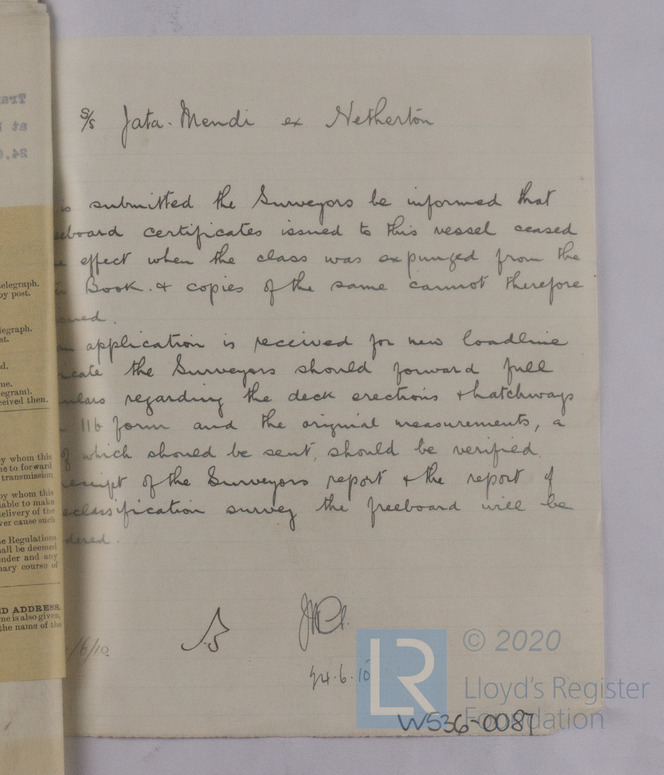 S/S Jata-Mendi ex Netherton
submitted the Surveyors be informed that
eboard certificates issued to this vessel ceased
effect when the class was expunged from the
Book. & copies of the same cannot therefore
application is received for new loadline
cate the Surveyors should forward full
ulars regarding the deck erections & hatchways
11b form and the original measurements, a
of which should be sent, should be verified.
eceipt of the Surveyors report & the report of
eclassification survey the freeboard will be
dered.
24.6.10
/6/10
elegraph.
by post.
legraph.
st.
d.
me.
egram).
ceived then.
by whom this
me to forward
transmission
by whom this
lable to make
delivery of the
ver cause such
e Regulations
all be deemed
nder and any
nary course of
D ADDRESS.
me is also given,
the name of the
LR
© 2020
Lloyd's Register
Foundation
W536-0087